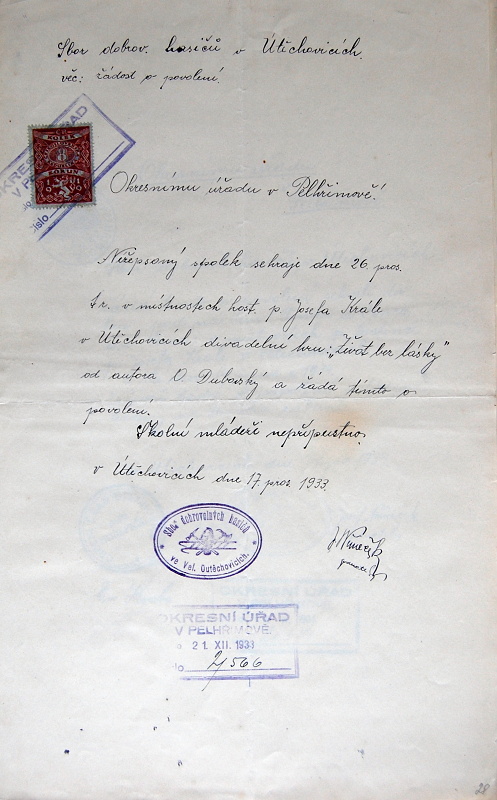 Sbor dobrov. hasičů v Útěchovicích.
věc: žádost o povolení.
OKRESNÍ ÚŘAD
V PEL
číslo
KOLEK
8
KORUN
Okresnímu úřadu v Pelhřimově!
Nížepsaný spolek sehraje dne 26. pros.
t.r. v místnostech host. p. Josefa Krále
v Útěchovicích divadelní hru: „Život bez lásky"
od autora O. Dubovský a žádá tímto o
povolení.
Školní mládeži nepřípustno.
v Útěchovicích dne 17. pros. 1933.
Sbor dobrovolných hasičů
ve Vel. Outěchovicích.
OKRESNÍ ÚŘAD
V PELHŘIMOVĚ.
21. XII. 1933
číslo 21566
28